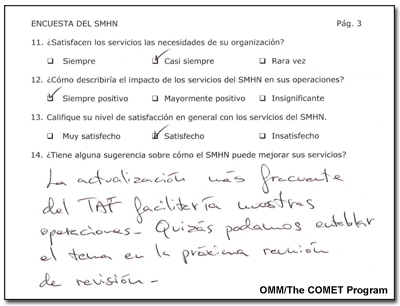 ENCUESTA DEL SMHN Pág. 3
11. ¿Satisfacen los servicios las necesidades de su organización?
Siempre Casi siempre Rara vez
12. ¿Cómo describiría el impacto de los servicios del SMHN en sus operaciones?
Siempre positivo Mayormente positivo Insignificante
13. Califique su nivel de satisfacción en general con los servicios del SMHN.
Muy satisfecho Satisfecho Insatisfecho
14. ¿Tiene alguna sugerencia sobre cómo el SMHN puede mejorar sus servicios?
La actualización más frecuente
del TAF facilitaría nuestras
operaciones- Quizás podamos entablar
el tema en la próxima reunión
de revisión-
OMM/The COMET Program